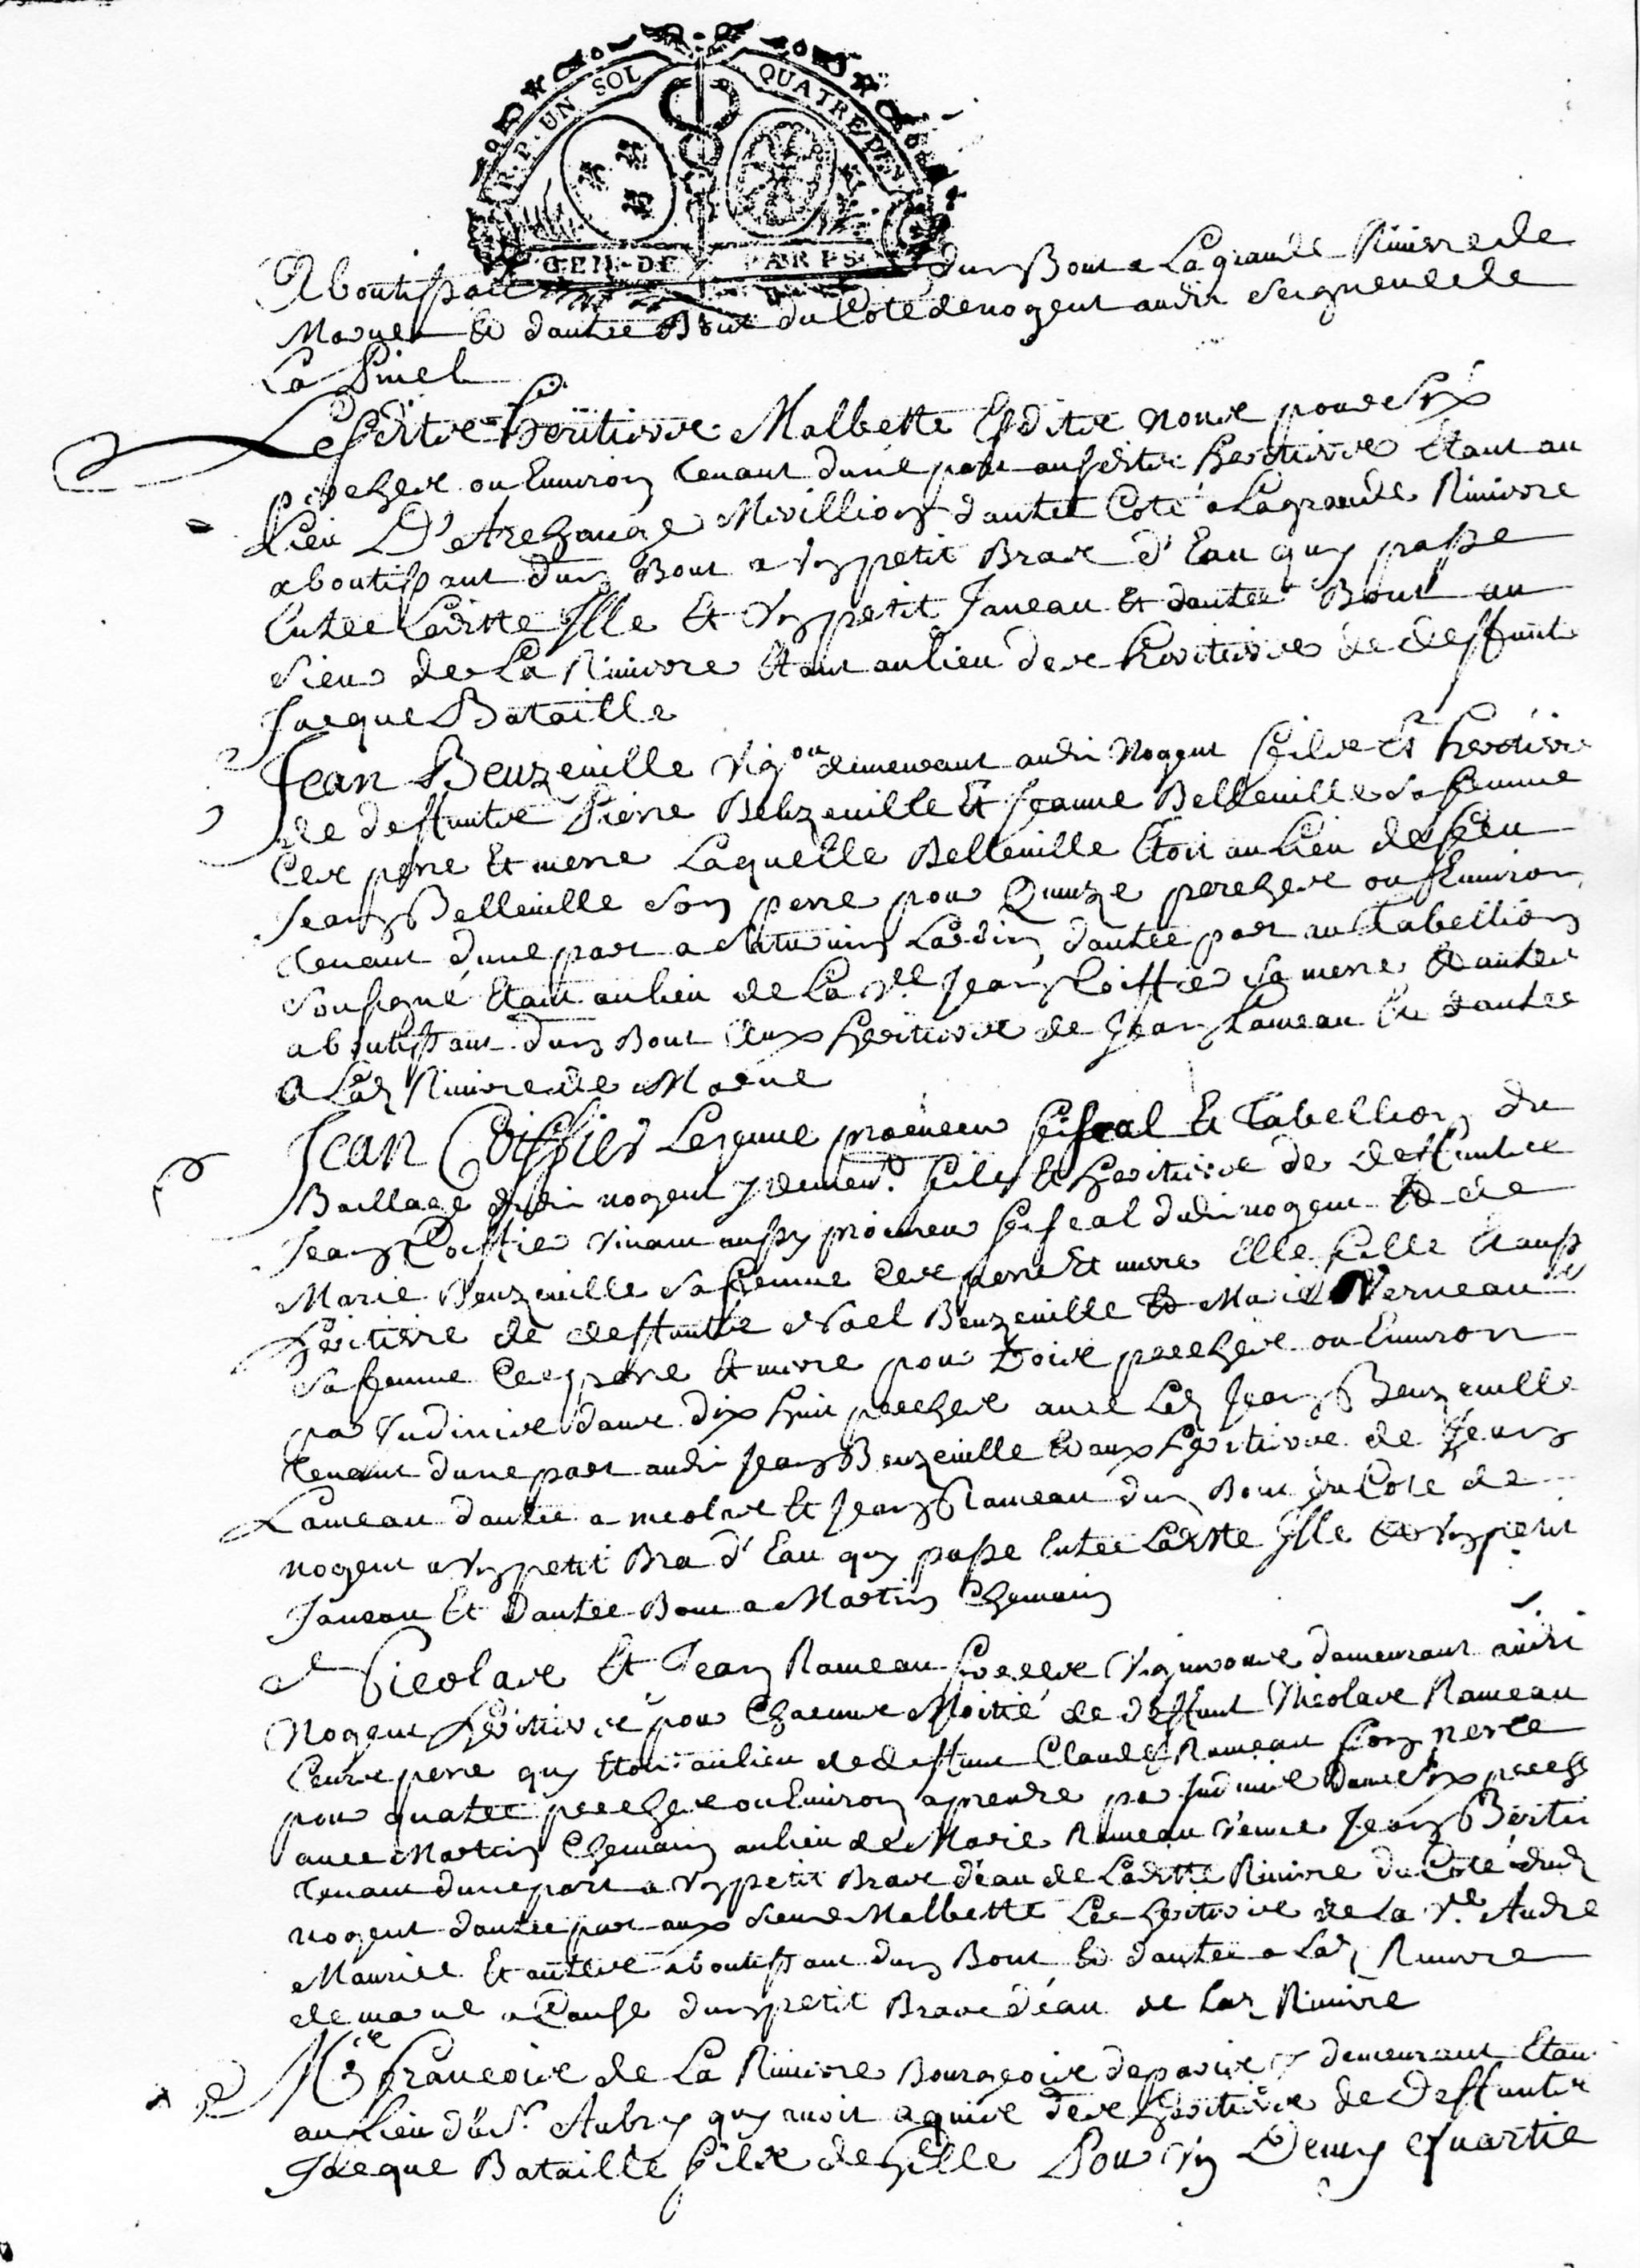 R. P. UN SOL QUATRE DEN
GEN. DE PARIS
Aboutissant dun Bout a La grande Riviere de
Marne Et dautre Bout du Coté de nogent audit Seigneur de
La Pinel
Lesdits heritiers Malbette Esdits noms pour six
perches ou Environ tenant dune part auxdits heritiers Etant au
Lieu D'Archange Mirillion dautre Coté a Lagrande Riviere
aboutissant dun Bout a Un petit Bras d'Eau quy passe
Entre Ladite Isle Et Un petit Janeau Et dautre Bout au
Sieur de La Riviere Etant au lieu des heritiers de deffunt
Jacque Bataille
Jean Beuzeville Vig.on demeurant audit Nogent fils Et heritier
de deffunts Pierre Beuzeville Et Jeanne Belleville sa femme
Ces pere Et mere Laquelle Belleville Etoit au Lieu de feu
Jean Belleville Son pere pour Quinze perches ou Environ
tenant dune part a Maturin Lardin dautre part au Tabellion
Sousigné Etant au lieu de La v.ve Jean Coiffier Sa mere Et autres
aboutissant dun Bout aux heritiers de Jean Lameau Et dautre
a Lad. Riviere de Marne
Jean Coiffier Lejeune procureur fiscal Et Tabellion du
Baillage dudit nogent y demeur.t fils Et heritier de deffunts
Jean Coiffier Vivant aussy procureur fiscal dudit nogent Et de
Marie Beuzeville Sa femme Ces pere Et mere Elle fille Et aussy
heritiere de deffunts Noel Beuzeville Et Marie Verneau
Sa femme Ces pere Et mere pour trois perches ou Environ
par Indivis dans dix huit perches avec Led. Jean Beuzeville
tenant dune part audit Jean Beuzeville Et aux heritiers de Jean
Lameau dautre a nicolas Et Jean Rameau dun Bout du Coté de
nogent a Un petit Bra d'Eau quy passe Entre Ladite Isle Et Un petit
Janeau Et dautre Bout a Martin Chemain
Nicolas Et Jean Rameau freres Vignerons demeurant audit
Nogent heritiers pour Chacun Moitié de deffunt Nicolas Rameau
Leurs pere quy Etoit au lieu de deffunt Claude Rameau Son
pour quatre perches ou Environ a prendre par Indivis dans six perches
avec Martin Chemain au lieu de Marie Rameau Veuve Jean
Tenant dune part a Un petit Bras d'eau de Ladite Riviere du Coté dud.
nogent dautre part aux Sieurs Malbette Les heritiers de La V.ve André
Maurice Et autres aboutissant dun Bout Et dautre a Lad. Riviere
de marne a Cause dun petit Bras d'eau de Lad. Riviere
M.re Francois de La Riviere Bourgeois de paris y demeurant Etant
au Lieu du S.r Aubry quy avoit aquis des heritiers de Deffunts
Jacque Bataille fils de Gille Pour Un Demy Quartie